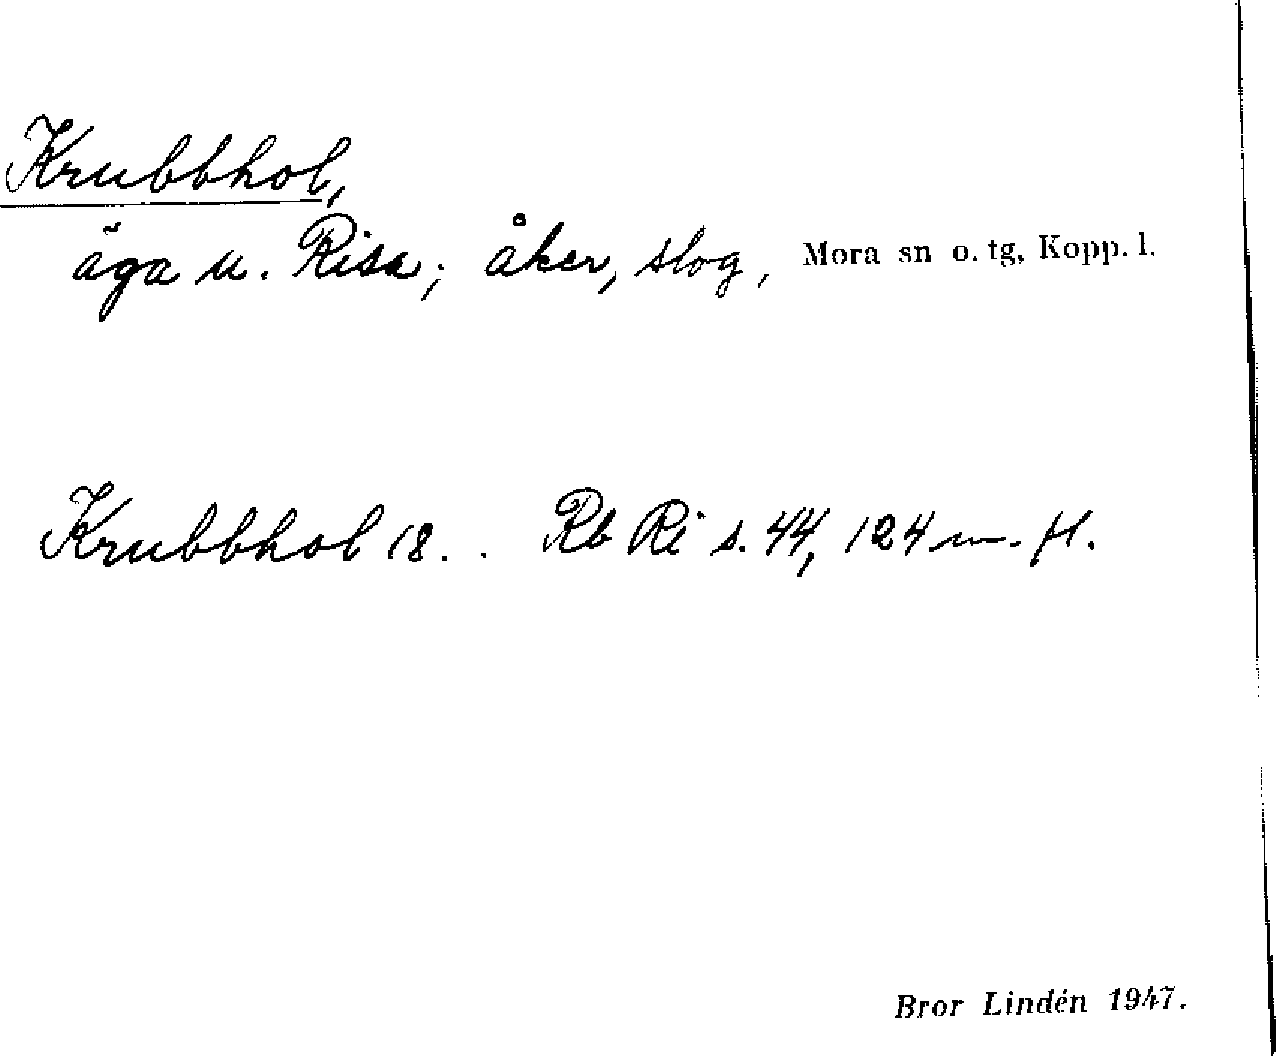 Krubbhol,
äga u. Risa; åker, slog, Mora sn o. tg, Kopp. l.
Krubbhol 18. . Rb Ri s. 44, 124 m. fl.
Bror Lindén 1947.